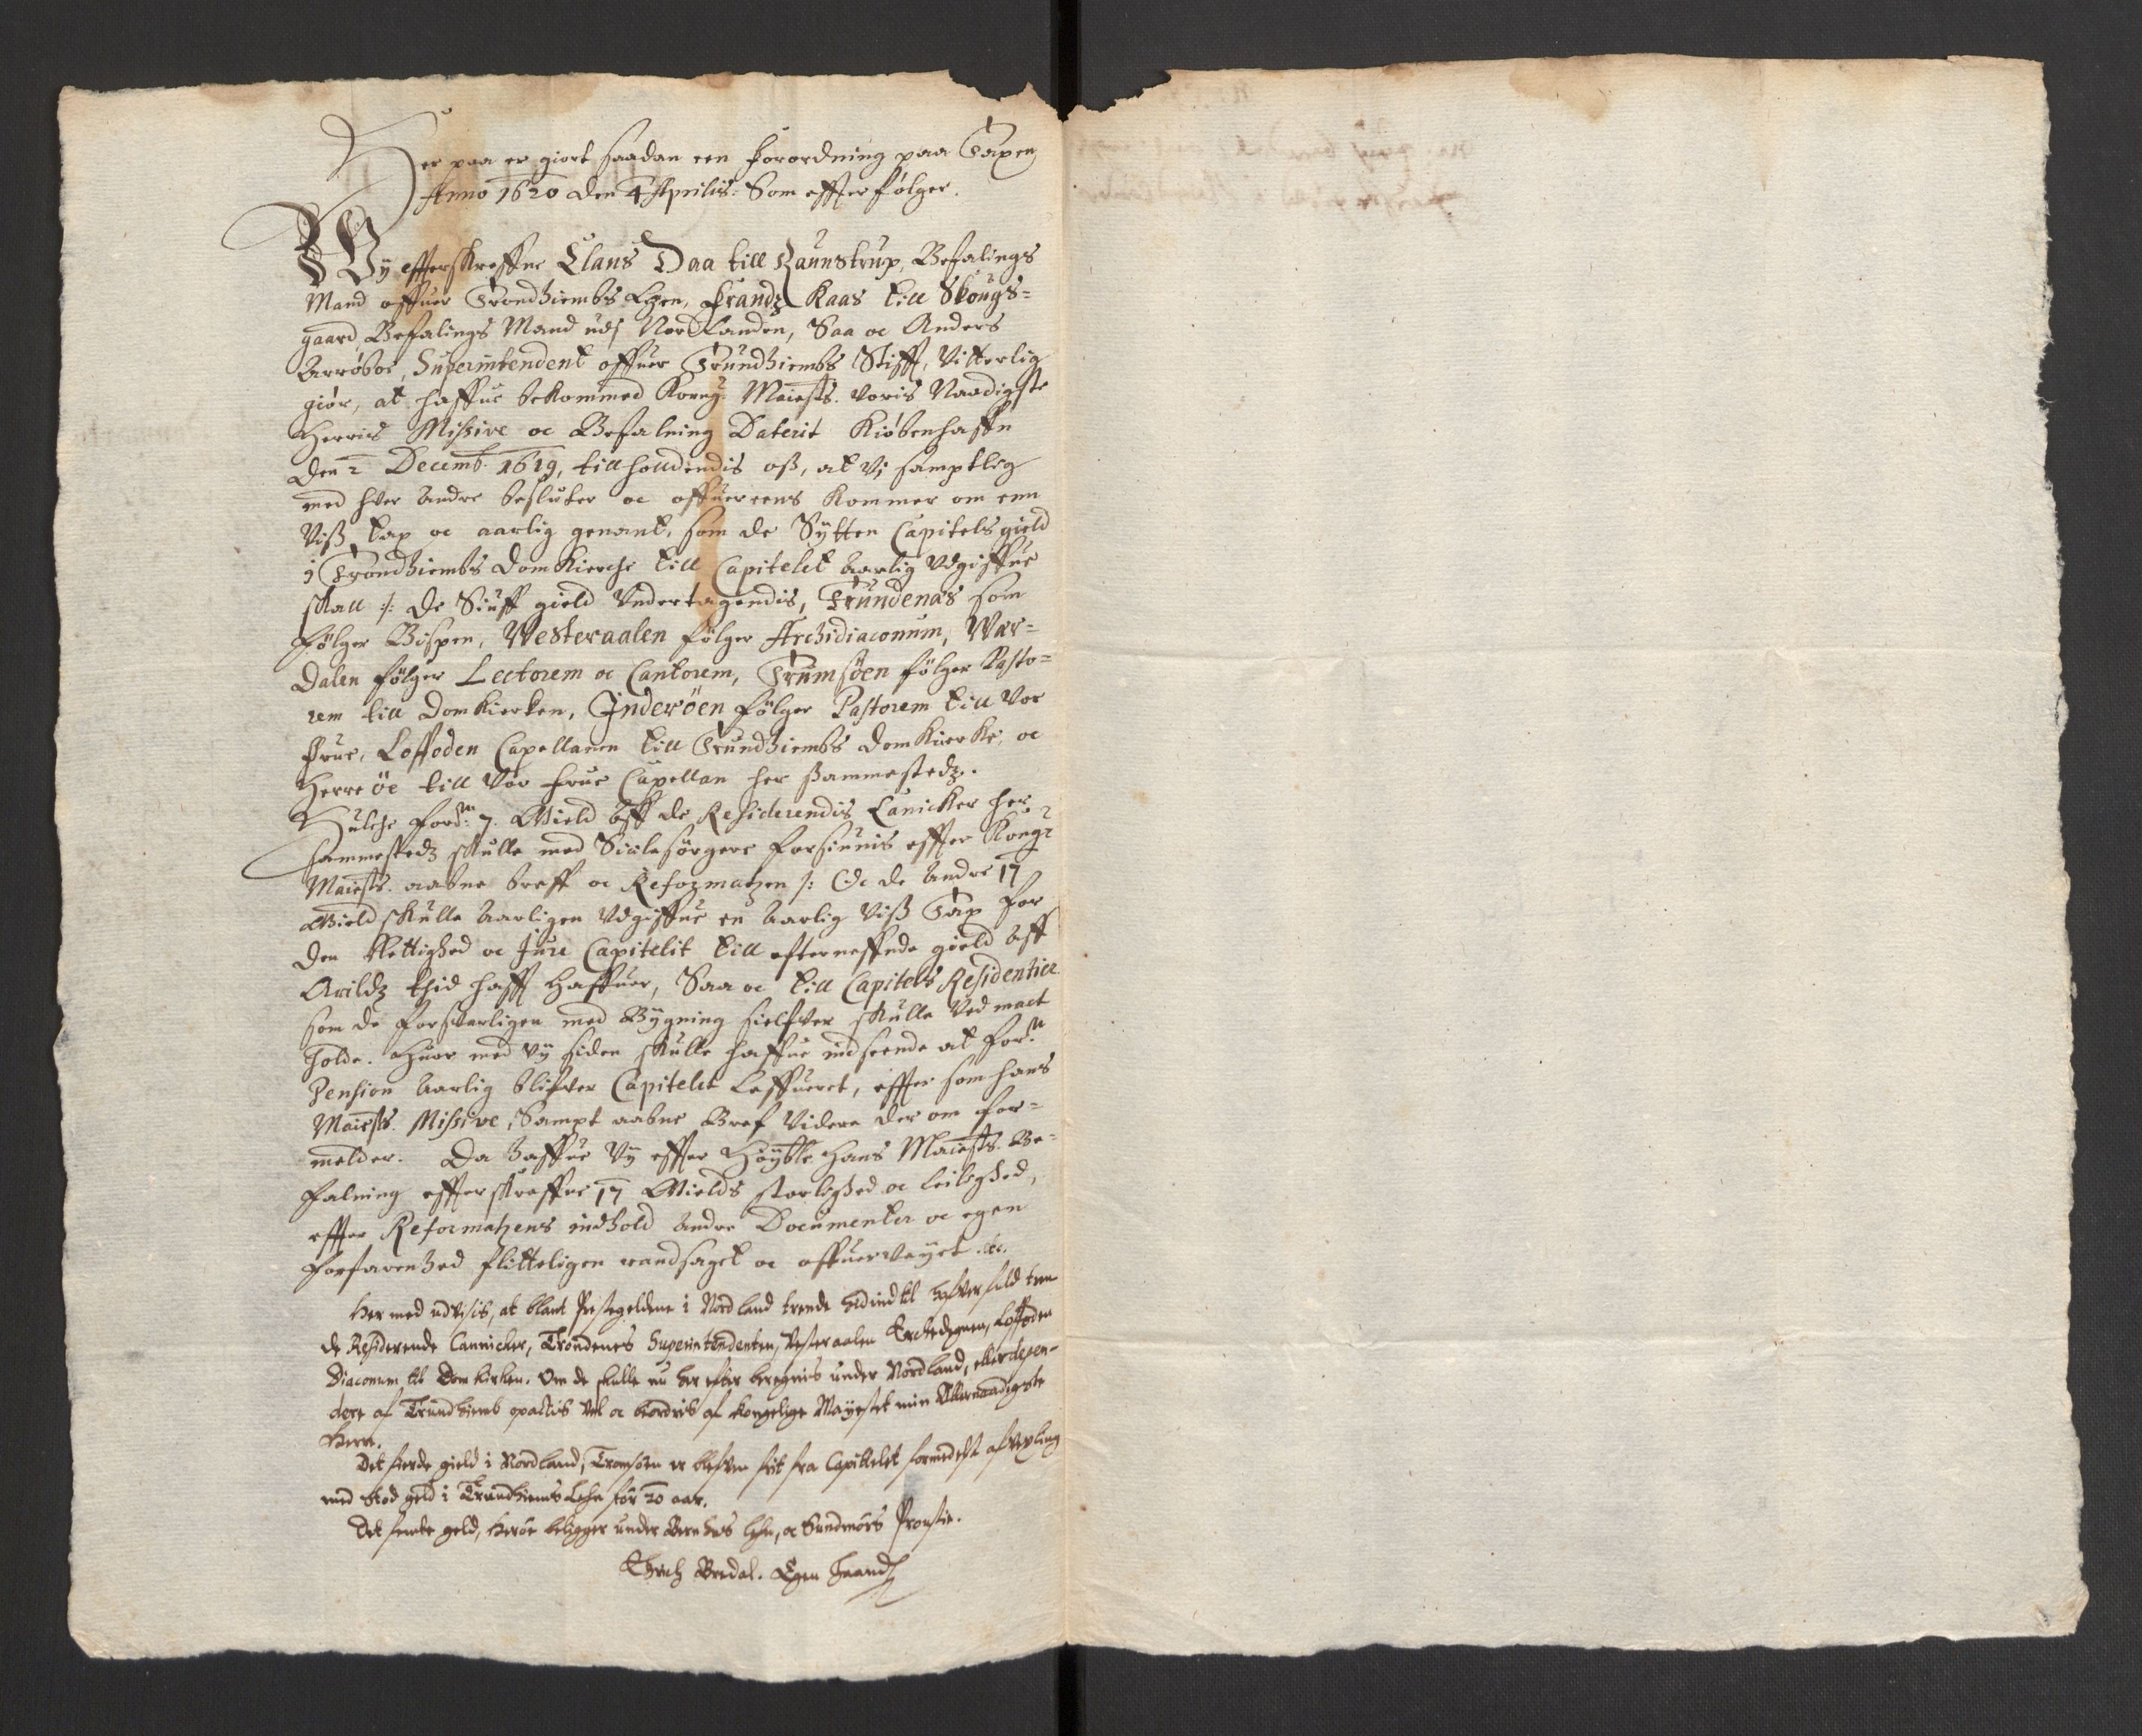 Her paa er giort saadan een forordning paa Taxen
Anno 1620 den 4 Aprilis: Som effter følger.
Wÿ effterskreffne Claus Daa till Raunstrup, Befalings
Mand offuer Trondhiembs Lehen, Frandz Kaas till Skougs=
gaard, Befalings Mand udj Nordlanden, Saa oc Anders
Arrøboe, Superintendent offuer Trundhiembs Stifft, Vitterlig
giør, at haffue bekommed Kong: Maiests. voris Naadigste
Herris Missive oc Befalning Daterit Kiøbenhaffn
den 2 Decemb. 1619, tillholdendis oß, at vj samptlig
med hver andre besluter oc offuereens kommer om een
Viß tax oc aarlig genant, som de Sÿtten Capitels gield
i Trondhiembs Domkierche till Capitelet aarlig Udgiffue
skall /: de Siuff gield Undertagendis, Trundenæs som
følger Bispen, Westeraalen følger Archidiaconum, Wær=
dalen følger Lectorem oc Cantorem, Trumsøen følger Pasto=
rem till Domkierken, Inderøen følger Pastorem till Vor
Frue, Loffoden Capellanen till Trundhiembs Domkierke, oc
Herreöe till Vor Frue Capellan her sammestedz.
Hulche ford: 7. Gield aff de Residerendis Canicker her
sammestedz skulle med Siælesørgere forsiunis effter Kong:
Maiests. aabne breff oc Reformatzen /: Oc de andre 17
Gield skulle aarligen Udgiffue en aarlig Viß Tax for
den Rettighed oc Jure Capitelit till efterneffnde gield aff
Arildz tid hafft haffuer, Saa oc till Capitels Residentier
som de forsvarligen med Bÿgning sielffver skulle Ved mact
holde. Huor med vÿ siden skulle haffue indseende at forn
Pension aarlig bliffver Capitelet leffueret, effter som hans
Maiests. Missive, Sampt aabne Bref videre der om for=
melder. Da haffue Vÿ effter Høÿbte hans Maiests. Be=
falning effterskreffne 17 Gields storlighed oc leilighed,
effter Reformatzens indhold andre Documenter oc egen
forfarenhed flitteligen randsaget oc offuerveÿet. etc.
Her med udvisis, at blant Prestegeldene i Nordland trende hid indtil hafver fuld tren
de Residerende Cannicker, Trondenes Superintendenten, Vesteraalen Erchedegnen, Loffoden
Diaconum til Dom kirken. Om de skulle nu her efter beregnis under Nordland, eller depen-
dere af Trundhiemb af Kongelige Mayestet min Allernaadigste
Herre.
Det fierde gield i Nordland, Tromsøen er blefven frit fra Capittelet formedelst afvexling
med Stod geld i Trundhiems Lehn for 20 aar.
Det femte geld, Herøe beligger under Bernhus Lehn, oc Sundmørs Proustie.
Erich Bredal. Egen Haand